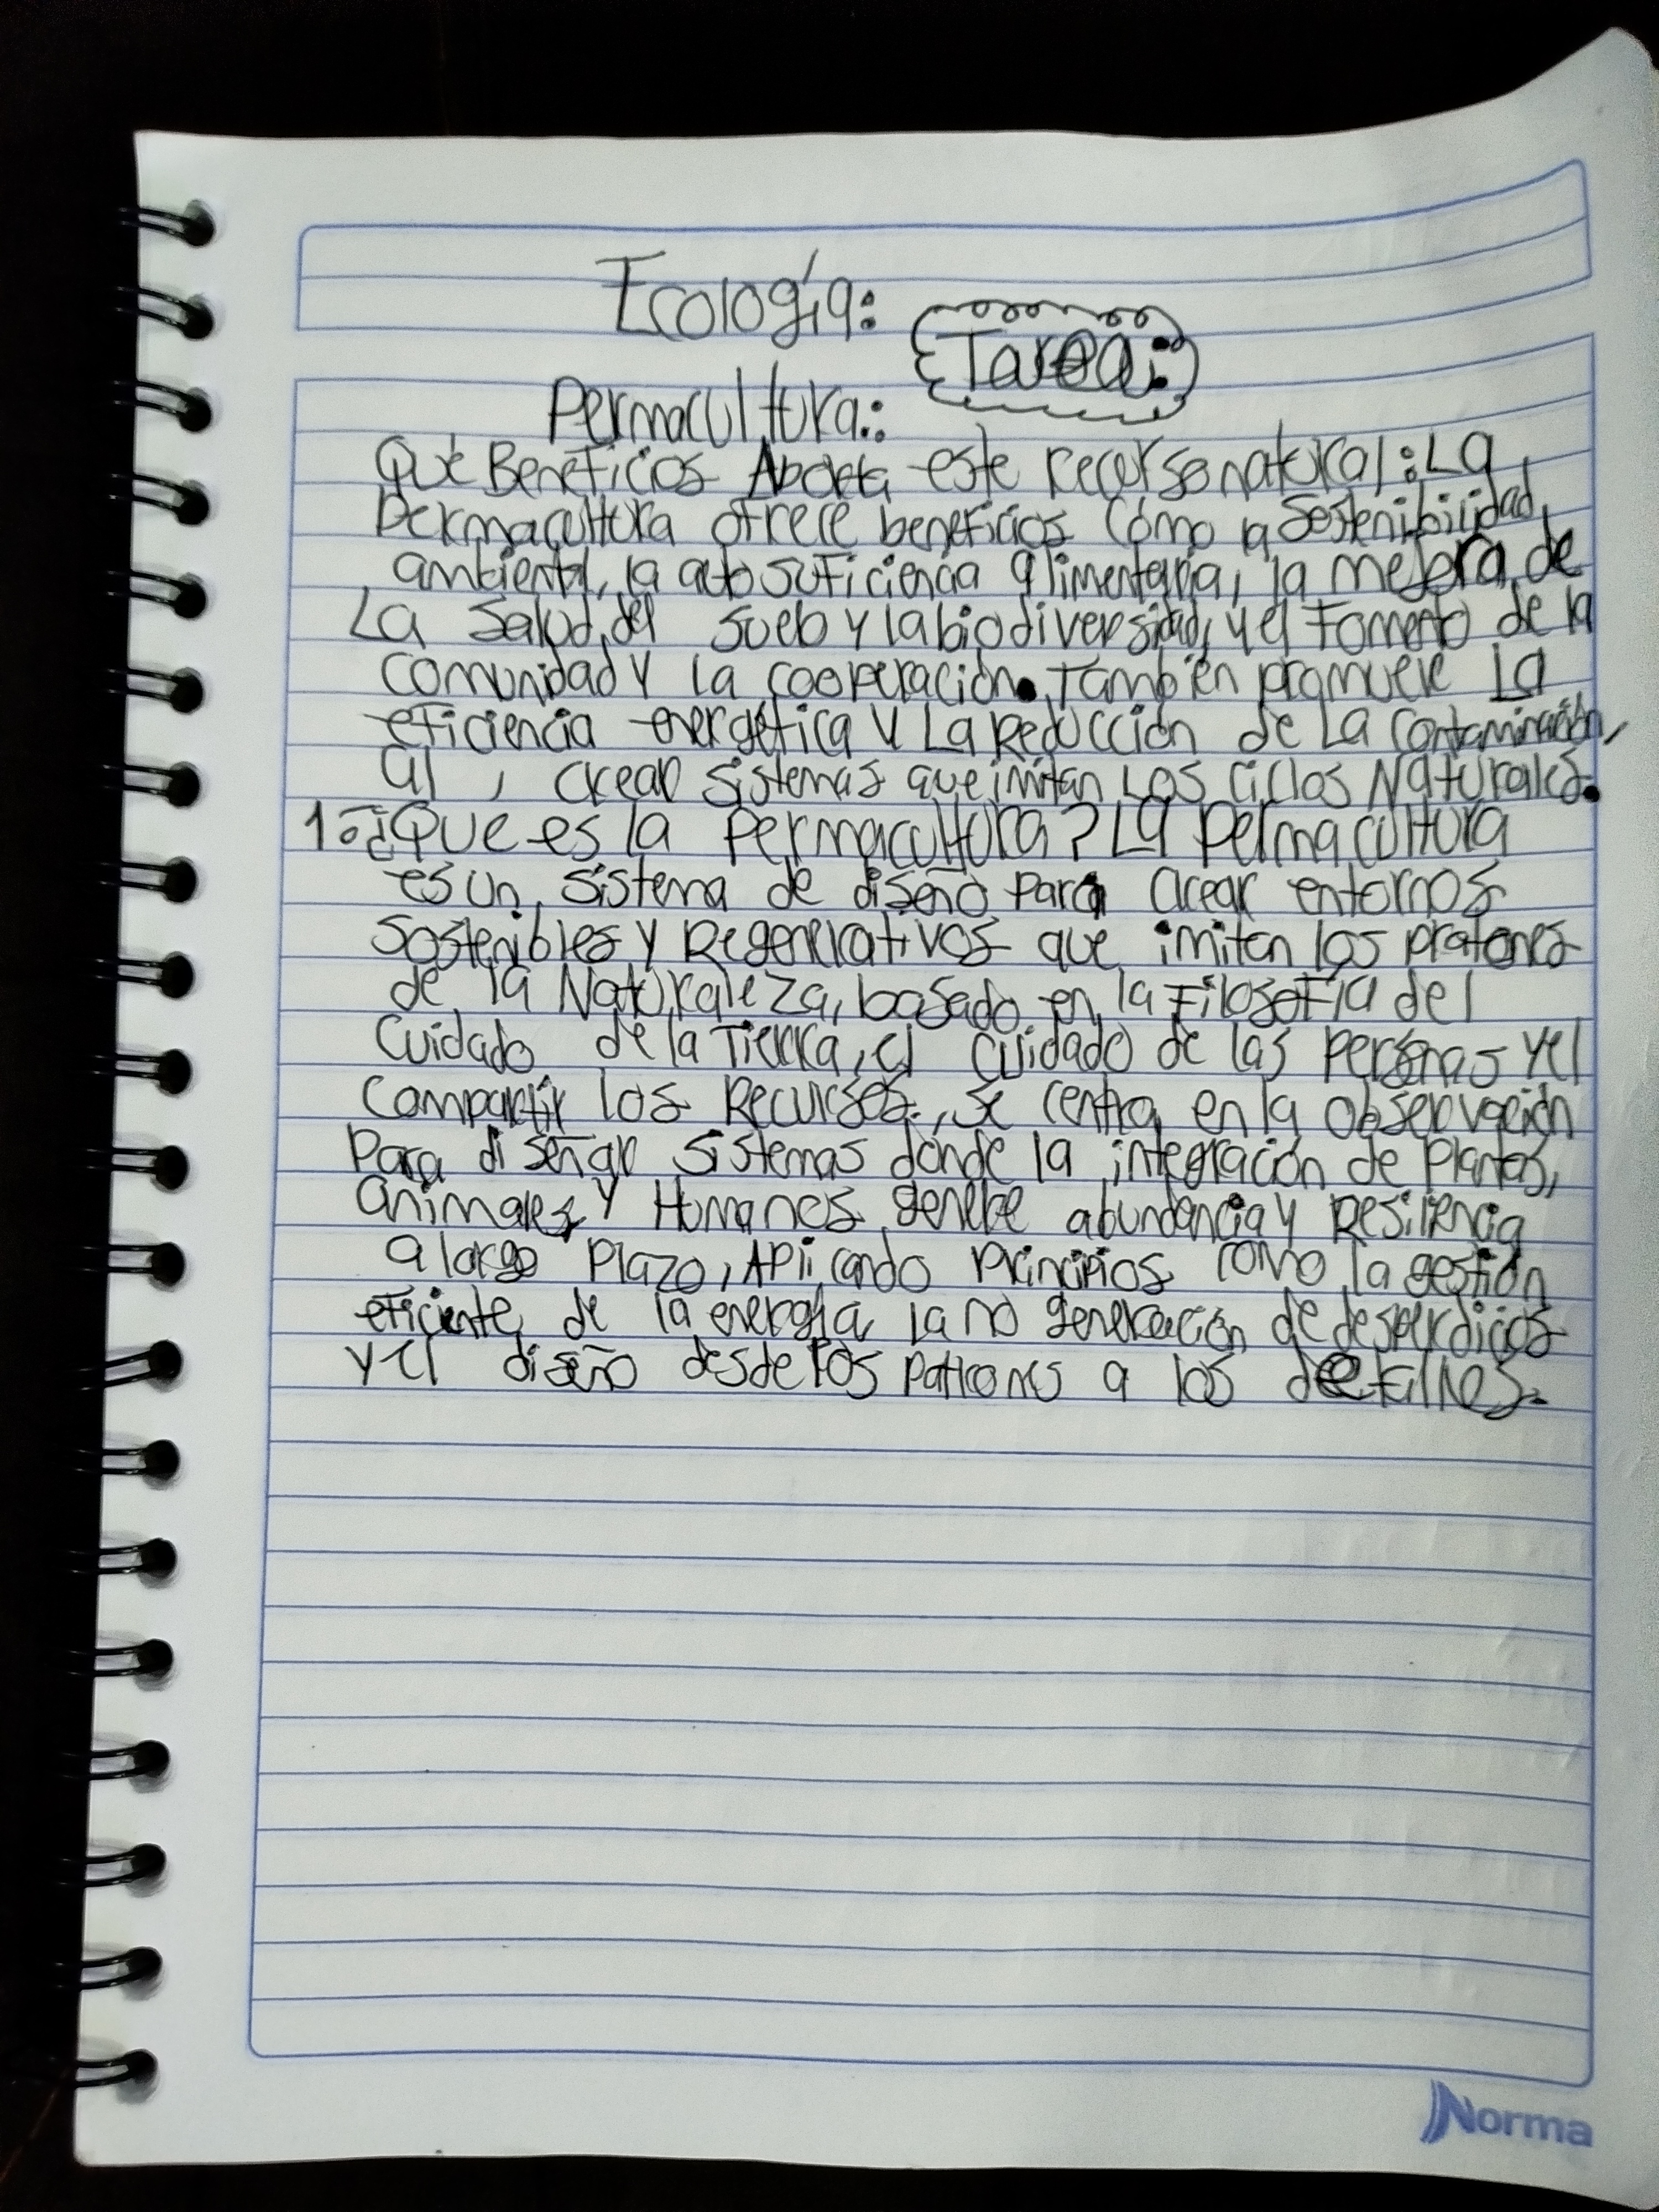 Ecología:
Tarea:
Permacultura:
Qué Beneficios Aborta este recurso natural: La
Permacultura ofrece beneficios cómo la Sostenibilidad
ambiental, la autosuficiencia alimentaria, la mejora de
La Salud del suelo y la biodiversidad, y el Fomento de la
comunidad y la cooperación. También promueve La
eficiencia energética y La Reducción de La contaminación,
al, crear sistemas que imitan Los ciclos Naturales.
1. ¿Que es la permacultura? La permacultura
es un sistema de diseño para crear entornos
sostenibles y Regenerativos que imiten los pratones
de la Naturaleza, basado en la Filosofía del
cuidado de la Tierra, el cuidado de las personas y el
compartir los Recursos., se centra en la observación
para diseñar sistemas donde la integración de plantas,
animales y Humanos genere abundancia y Resiliencia
a largo plazo, Aplicando principios como la gestión
eficiente de la energía la no generación de desperdicios
y el diseño desde los patrones a los detalles.
Norma